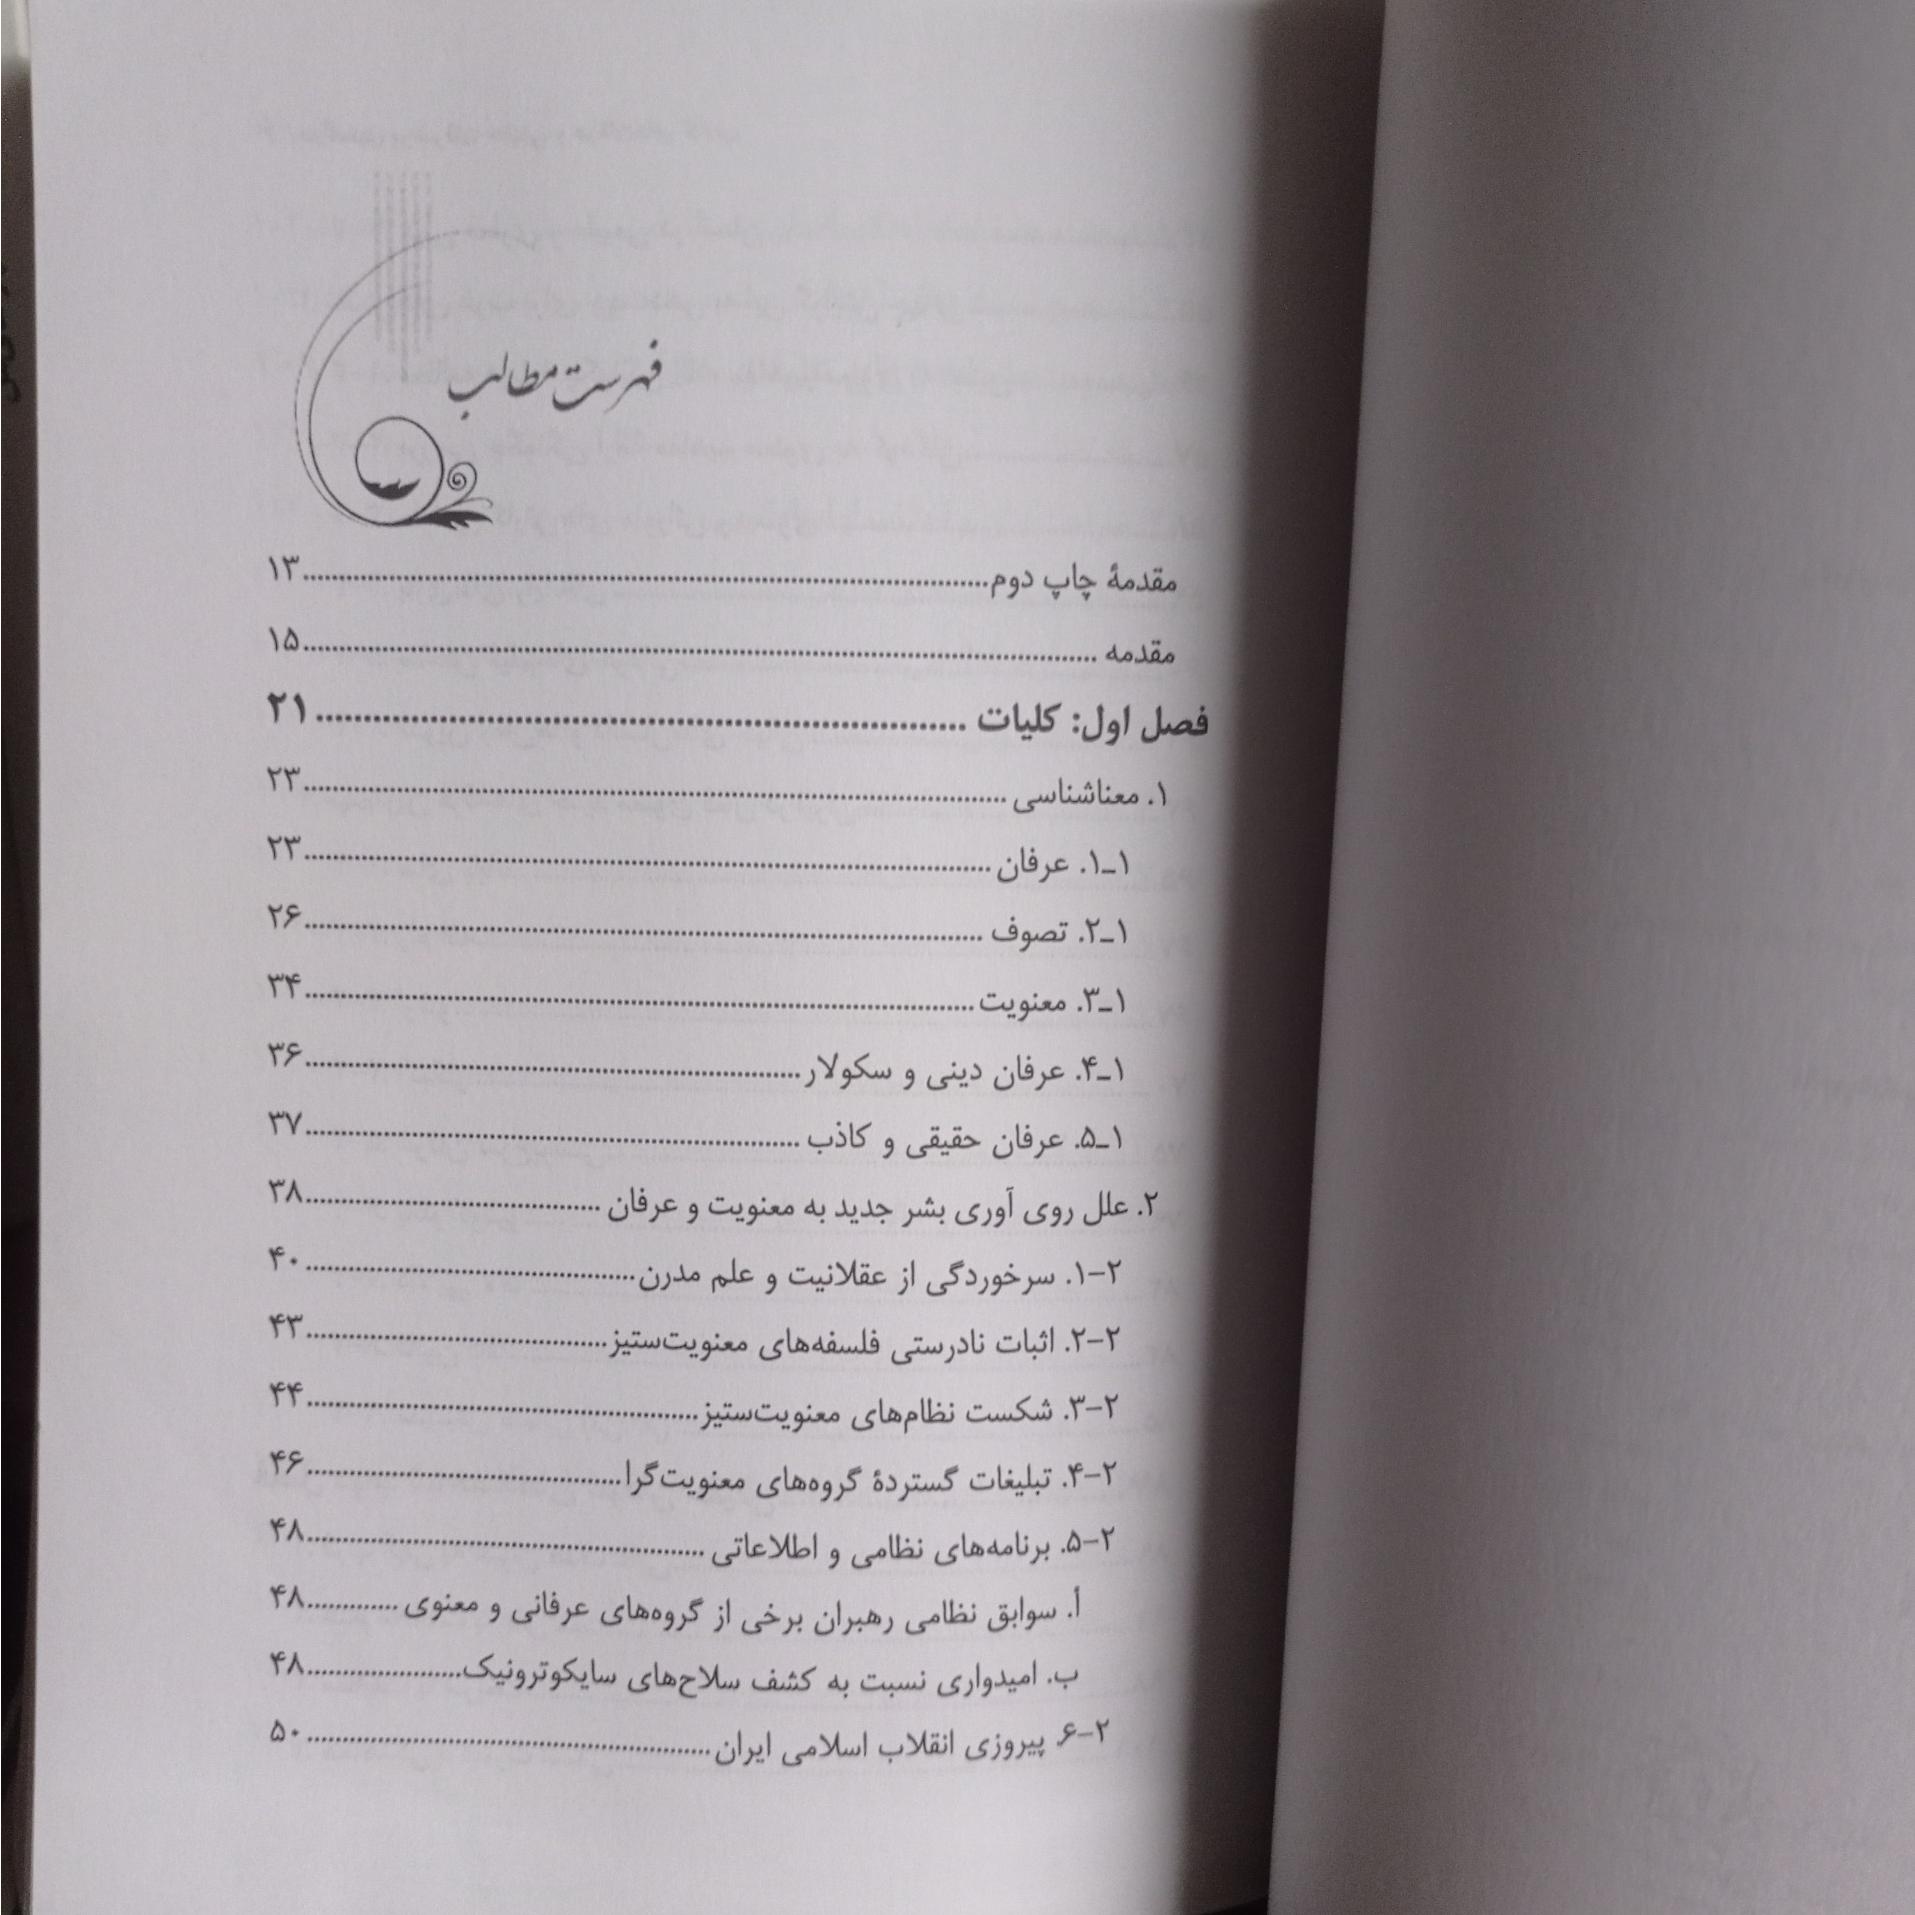 فهرست مطالب
مقدمهٔ چاپ دوم..........۱۳
مقدمه ..........۱۵
فصل اول: کلیات ..........۲۱
۱. معناشناسی ..........۲۳
۱ـ۱. عرفان ..........۲۳
۱ـ۲. تصوف ..........۲۶
۱ـ۳. معنویت..........۳۴
۱ـ۴. عرفان دینی و سکولار..........۳۶
۱ـ۵. عرفان حقیقی و کاذب ..........۳۷
۲. علل روی آوری بشر جدید به معنویت و عرفان ..........۳۸
۲-۱. سرخوردگی از عقلانیت و علم مدرن..........۴۰
۲-۲. اثبات نادرستی فلسفه‌های معنویت‌ستیز..........۴۳
۲-۳. شکست نظام‌های معنویت‌ستیز..........۴۴
۲-۴. تبلیغات گستردهٔ گروه‌های معنویت‌گرا..........۴۶
۲-۵. برنامه‌های نظامی و اطلاعاتی ..........۴۸
أ. سوابق نظامی رهبران برخی از گروه‌های عرفانی و معنوی ..........۴۸
ب. امیدواری نسبت به کشف سلاح‌های سایکوترونیک..........۴۸
۲-۶. پیروزی انقلاب اسلامی ایران..........۵۰